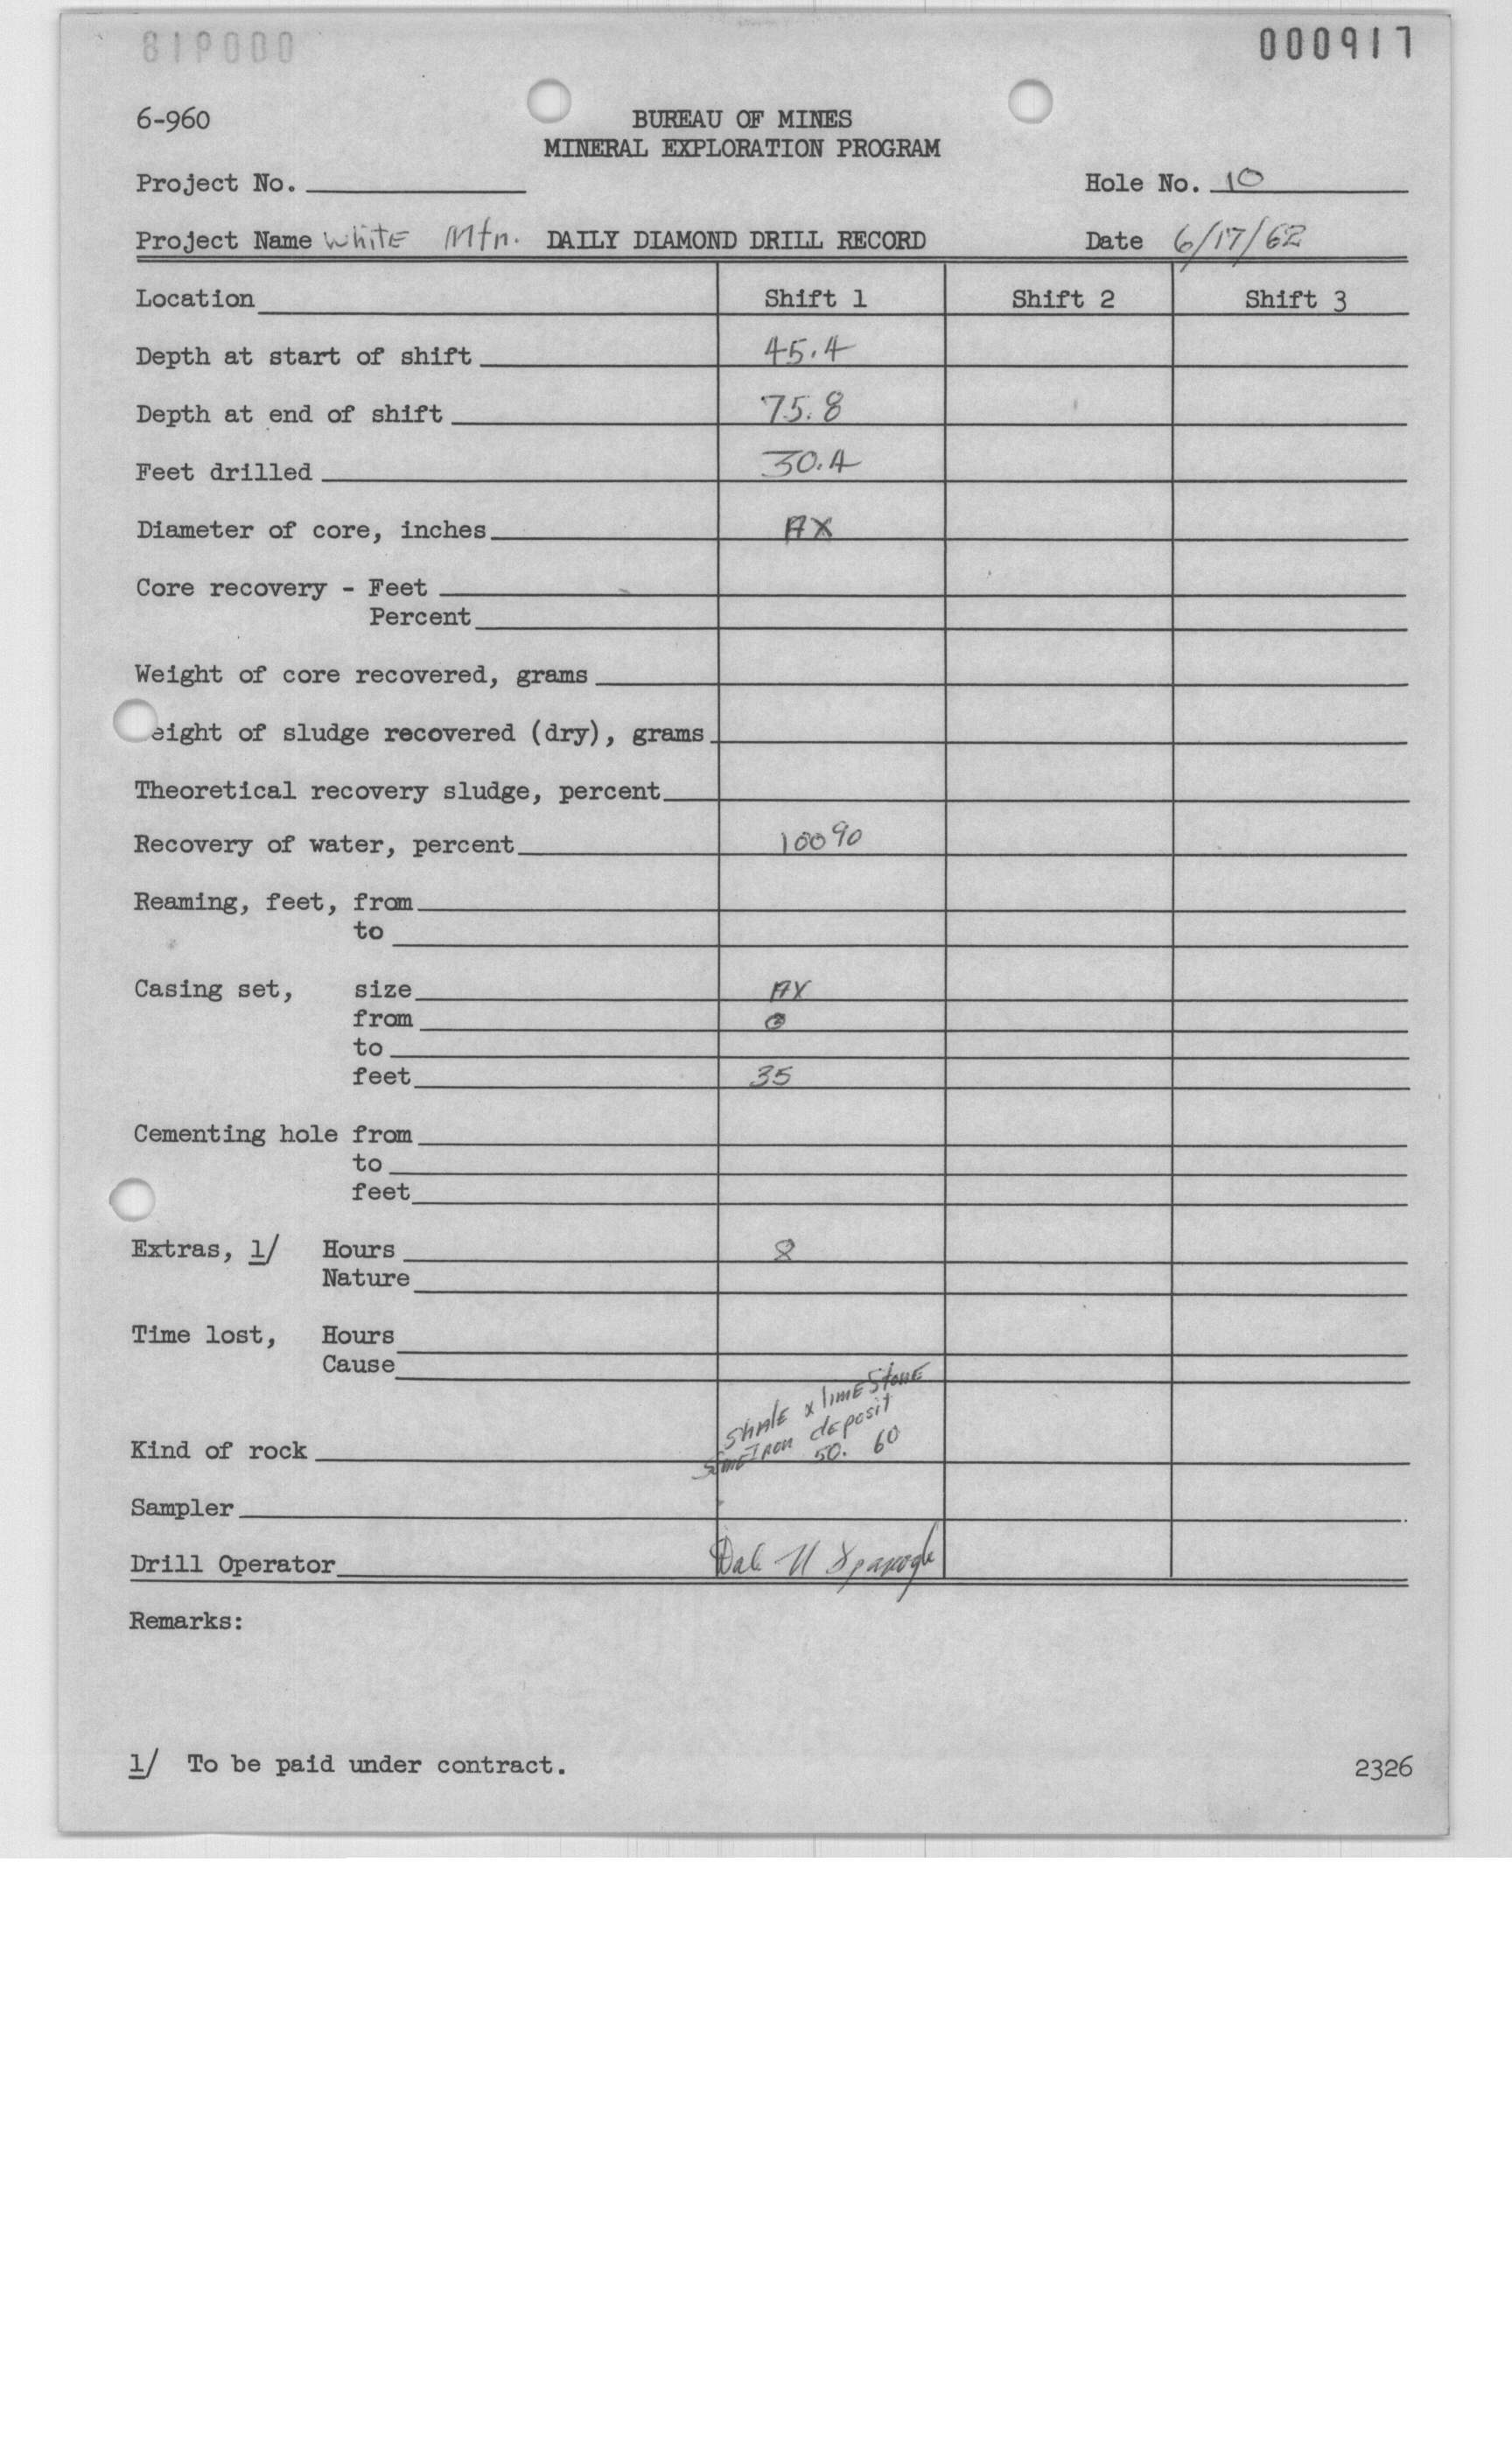 000917
6-960
BUREAU OF MINES
MINERAL EXPLORATION PROGRAM
Project No. Hole No. 10
Project Name White Mtn. DAILY DIAMOND DRILL RECORD Date 6/17/62
Location Shift 1 Shift 2 Shift 3
Depth at start of shift 45.4
Depth at end of shift 75.8
Feet drilled 30.4
Diameter of core, inches AX
Core recovery - Feet
Percent
Weight of core recovered, grams
eight of sludge recovered (dry), grams
Theoretical recovery sludge, percent
Recovery of water, percent 100%
Reaming, feet, from
to
Casing set, size AX
from 0
to
feet 35
Cementing hole from
to
feet
Extras, 1/ Hours 8
Nature
Time lost, Hours
Cause
Shale & limestone
some Iron deposit
Kind of rock 50. 60
Sampler
Drill Operator Dale
Remarks:
1/ To be paid under contract.
2326